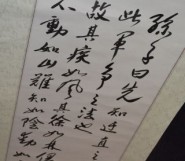 孫子曰先知迂直之
此軍爭之法也
故其疾如風其徐如
不動如山難知如陰動如